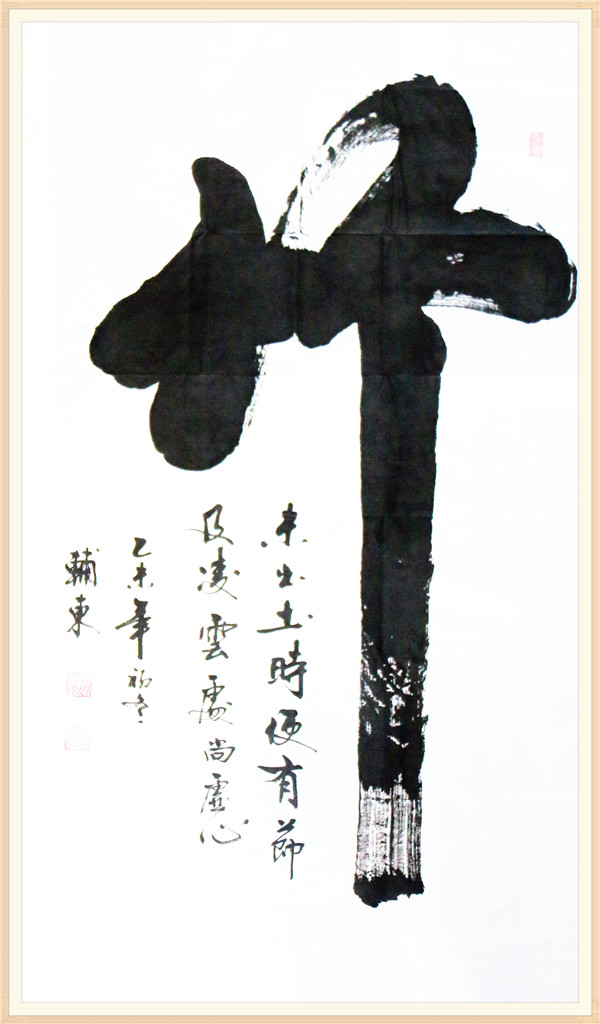 竹
未出土時便有節
及凌雲處尚虛心
乙未年初冬
輔東